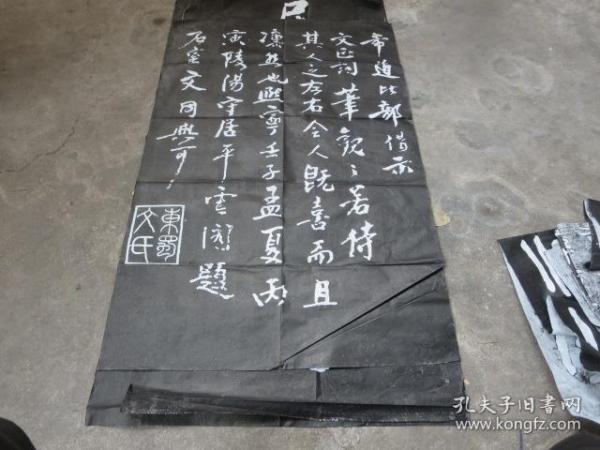 希道比部借示
文正词笔观之若侍
其人之左右令人既喜而且
凛然也熙宁壬子孟夏丙
寅陵阳守居平云阁题
石室文同與可
東蜀文氏
孔夫子旧书网
www.kongfz.com